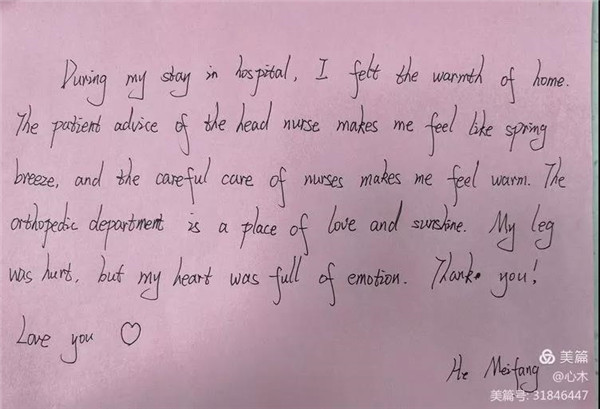 During my stay in hospital, I felt the warmth of home.
The patient advice of the head nurse makes me feel like spring
breeze, and the careful care of nurses makes me feel warm. The
orthopedic department is a place of love and sunshine. My leg
was hurt, but my heart was full of emotion. Thank you!
Love you ♡
He Meifang
美篇
@心木
美篇号: 31846447